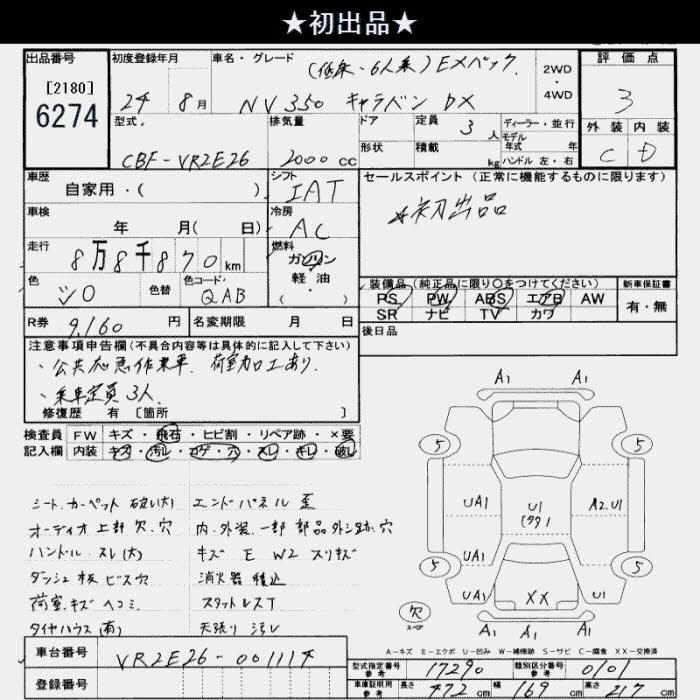 ★初出品★
出品番号
[2180]
6274
初度登録年月
24 8月
車名・グレード
(低床・6人乗) EXパック
NV350 キャラバン DX
2WD
・
4WD
評価点
3
外装 内装
C D
型式
CBF-VR2E26
排気量
2000 cc
ドア
形状
定員 3 人
積載 kg
ディーラー・並行
モデル
年式 年
ハンドル 左・右
車歴
自家用・( )
シフト
IAT
セールスポイント (正常に機能するものに限ります)
★初出品
車検
年 月( 日)
冷房
AC
走行
8万8千870km
燃料
ガソリン
軽・油
( ・ )
色
シロ
色替
色コード
QAB
装備品 (純正品に限り○をつけてください)
PS PW ABS エアB AW
SR ナビ TV カワ
新車保証書
有・無
R券 9,160 円
名変期限 月 日
後日品
注意事項申告欄(不具合内容等は具体的に記入して下さい)
・公共応急作業車. 荷室加工あり.
・乗車定員 3人.
修復歴 有 [箇所 ]
検査員 FW キズ・飛石・ヒビ割・リペア跡・×要
記入欄 内装 キズ・汚レ・コゲ・穴・スレ・キレ・破レ
シート.カーペット 破レ(大)
オーディオ 上部 欠.穴
ハンドル.スレ(大)
ダッシュ板 ビス穴
荷室.キズ ヘコミ
タイヤハウス(有)
エンドパネル 歪
内.外装.一部 部品外シ跡.穴
キズ E W2 スリキズ
消火器 積込
スタットレスT
天張リ 汚レ
A1 A1
5 5
UA1 U1 A2.U1
UA1
UA1 XX U1
5 5
欠
スペア
A1 A1 A1
A－キズ E－エクボ U－凹み W－補修跡 S－サビ C－腐食 XX－交換済
車台番号 VR2E26-001114
登録番号
型式指定番号 参考 17290
類別区分番号 参考 0101
車庫証明用 参考 長さ 472 cm 幅 169 cm 高さ 217 cm